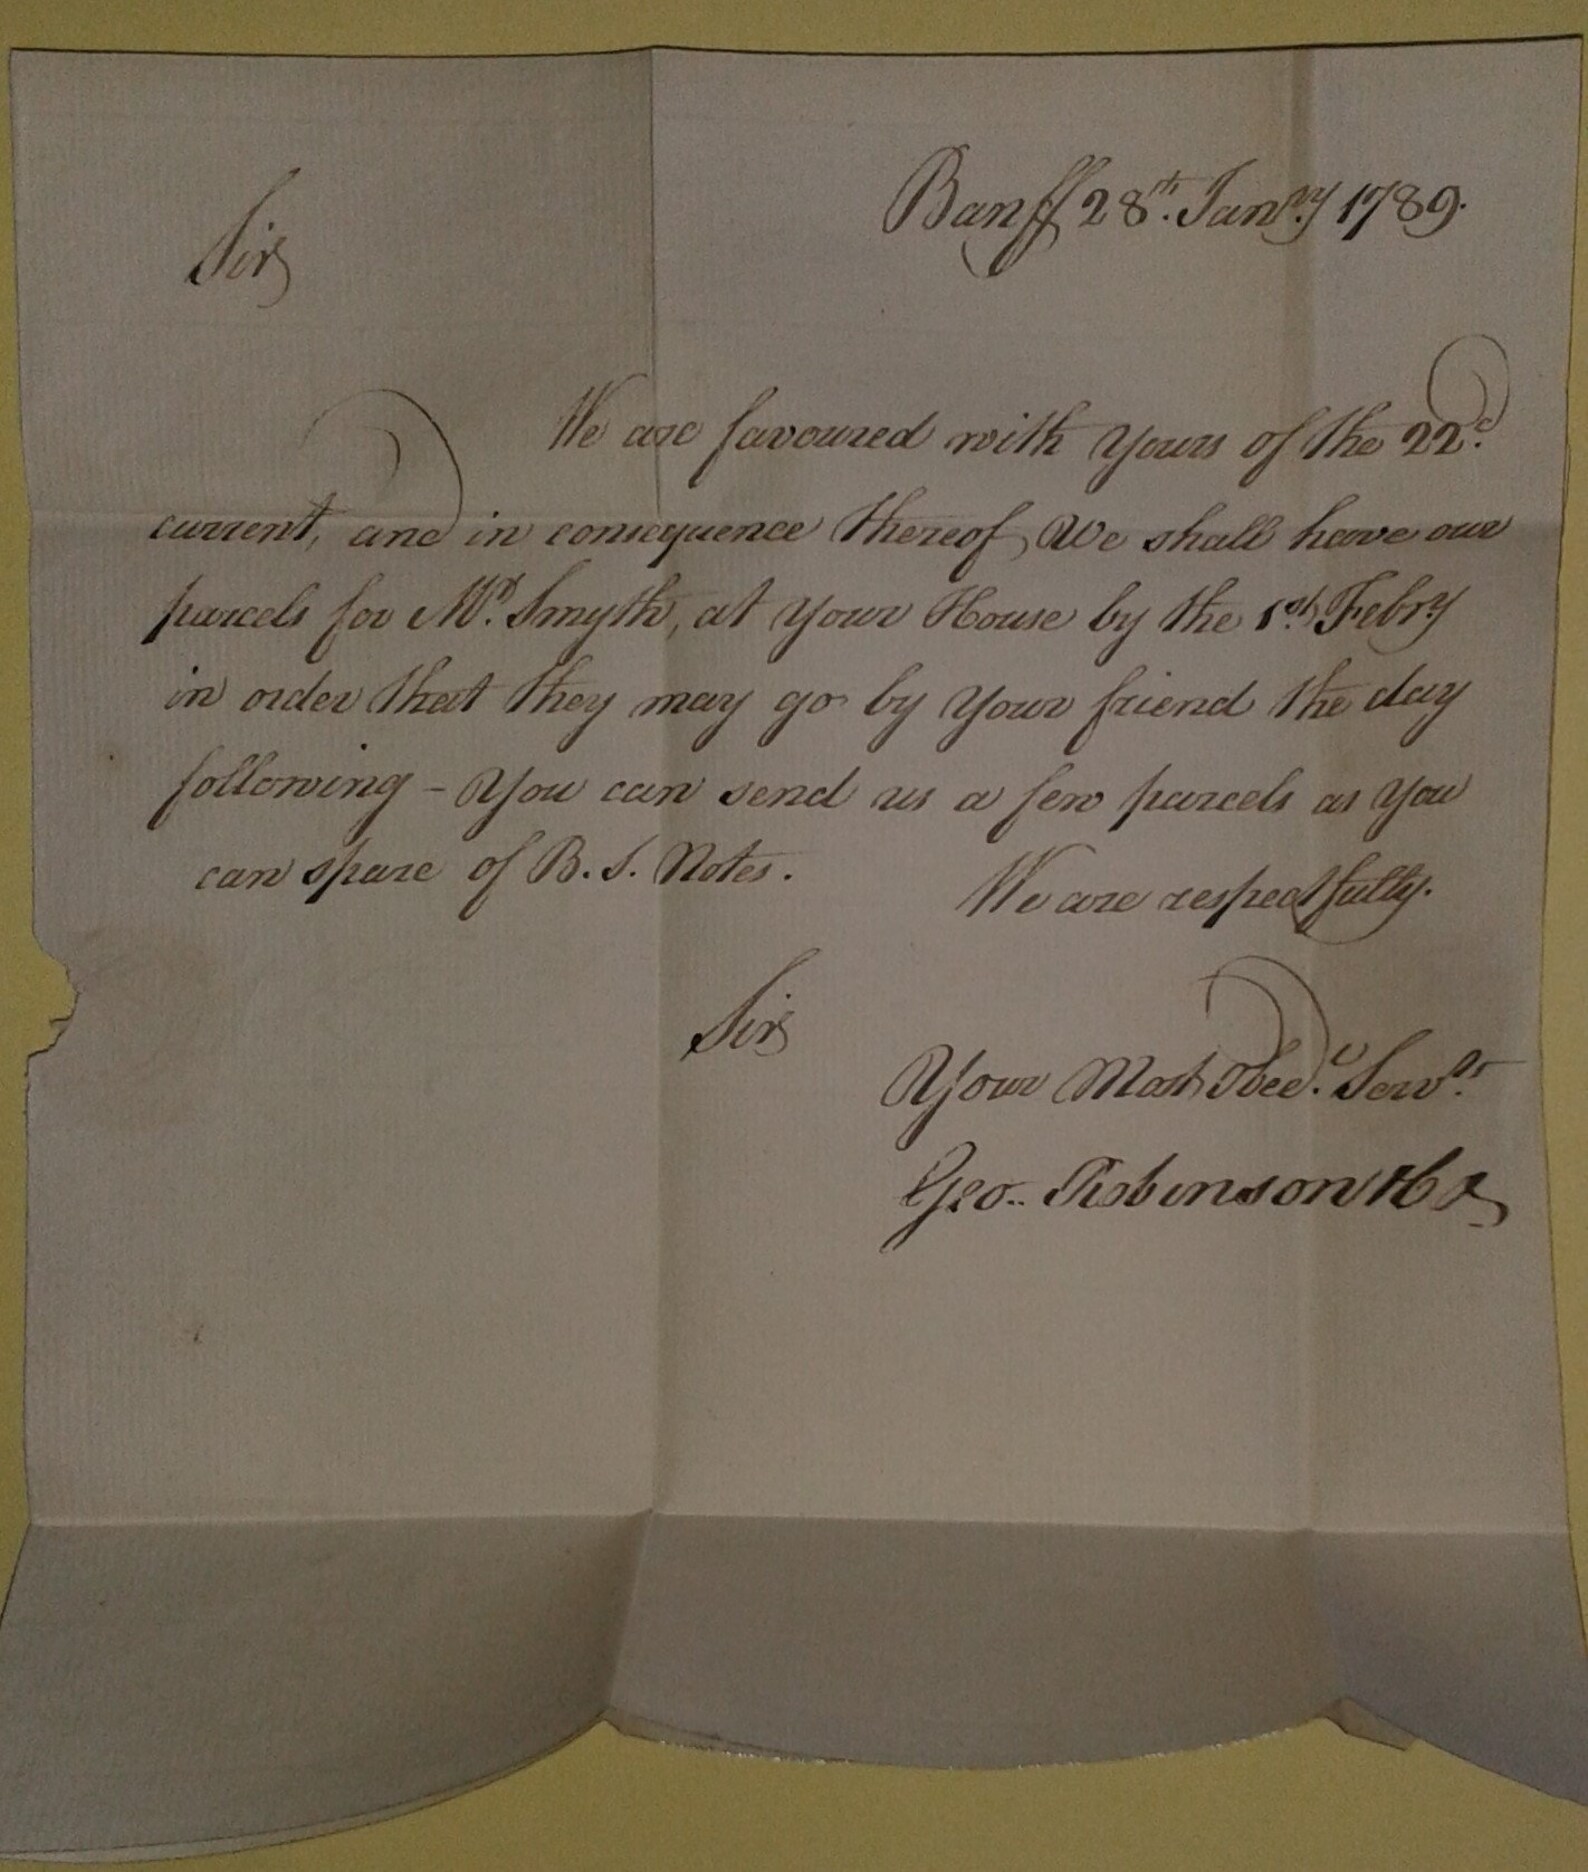 Banff 28th. Janry 1789.
Sir
We are favoured with Yours of the 22d.
current, and in consequence thereof, We shall have our
parcels for Mr. Smyth, at Your House by the 1st. Febry
in order that they may go by Your friend the day
following - You can send us a few parcels as You
can spare of B. S. Notes.
We are respectfully.
Sir
Your Most Obedt. Servts.
Geo.. Robinson